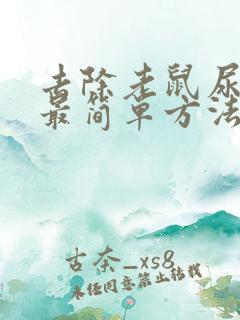 去除老鼠尿
最简单方法
古奈_xs8
未经同意禁止转载